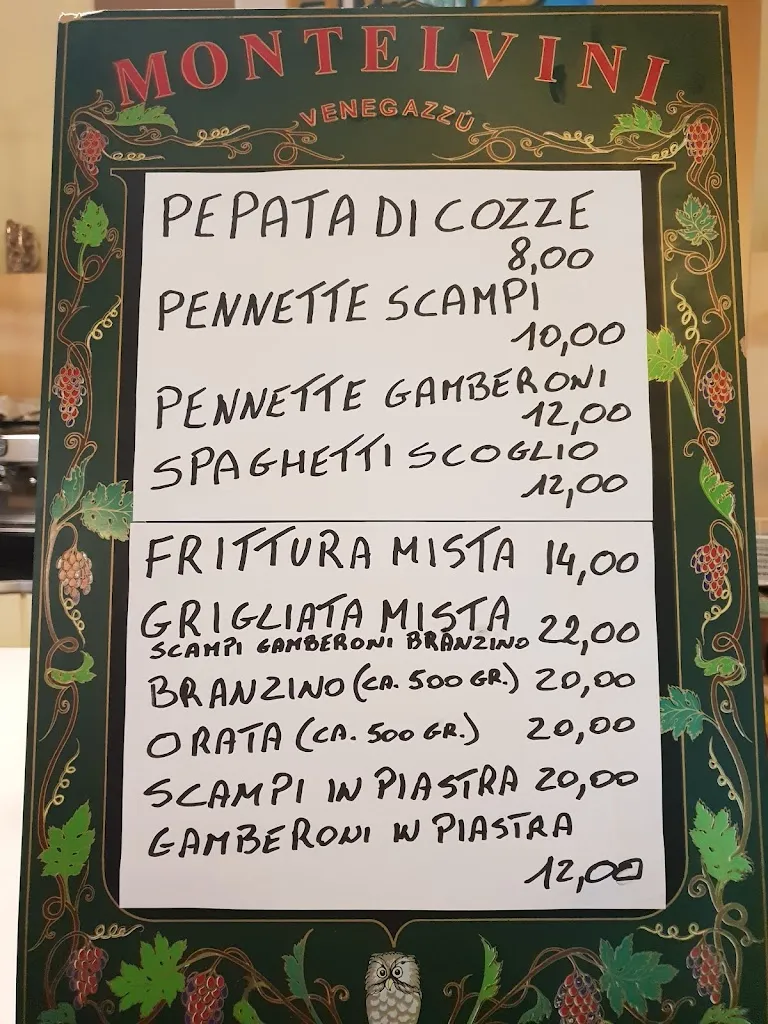 MONTELVINI
VENEGAZZÚ
PEPATA DI COZZE
8,00
PENNETTE SCAMPI
10,00
PENNETTE GAMBERONI
12,00
SPAGHETTI SCOGLIO
12,00
FRITTURA MISTA 14,00
GRIGLIATA MISTA 22,00
SCAMPI GAMBERONI BRANZINO
BRANZINO (CA. 500 GR.) 20,00
ORATA (CA. 500 GR.) 20,00
SCAMPI IN PIASTRA 20,00
GAMBERONI IN PIASTRA
12,00